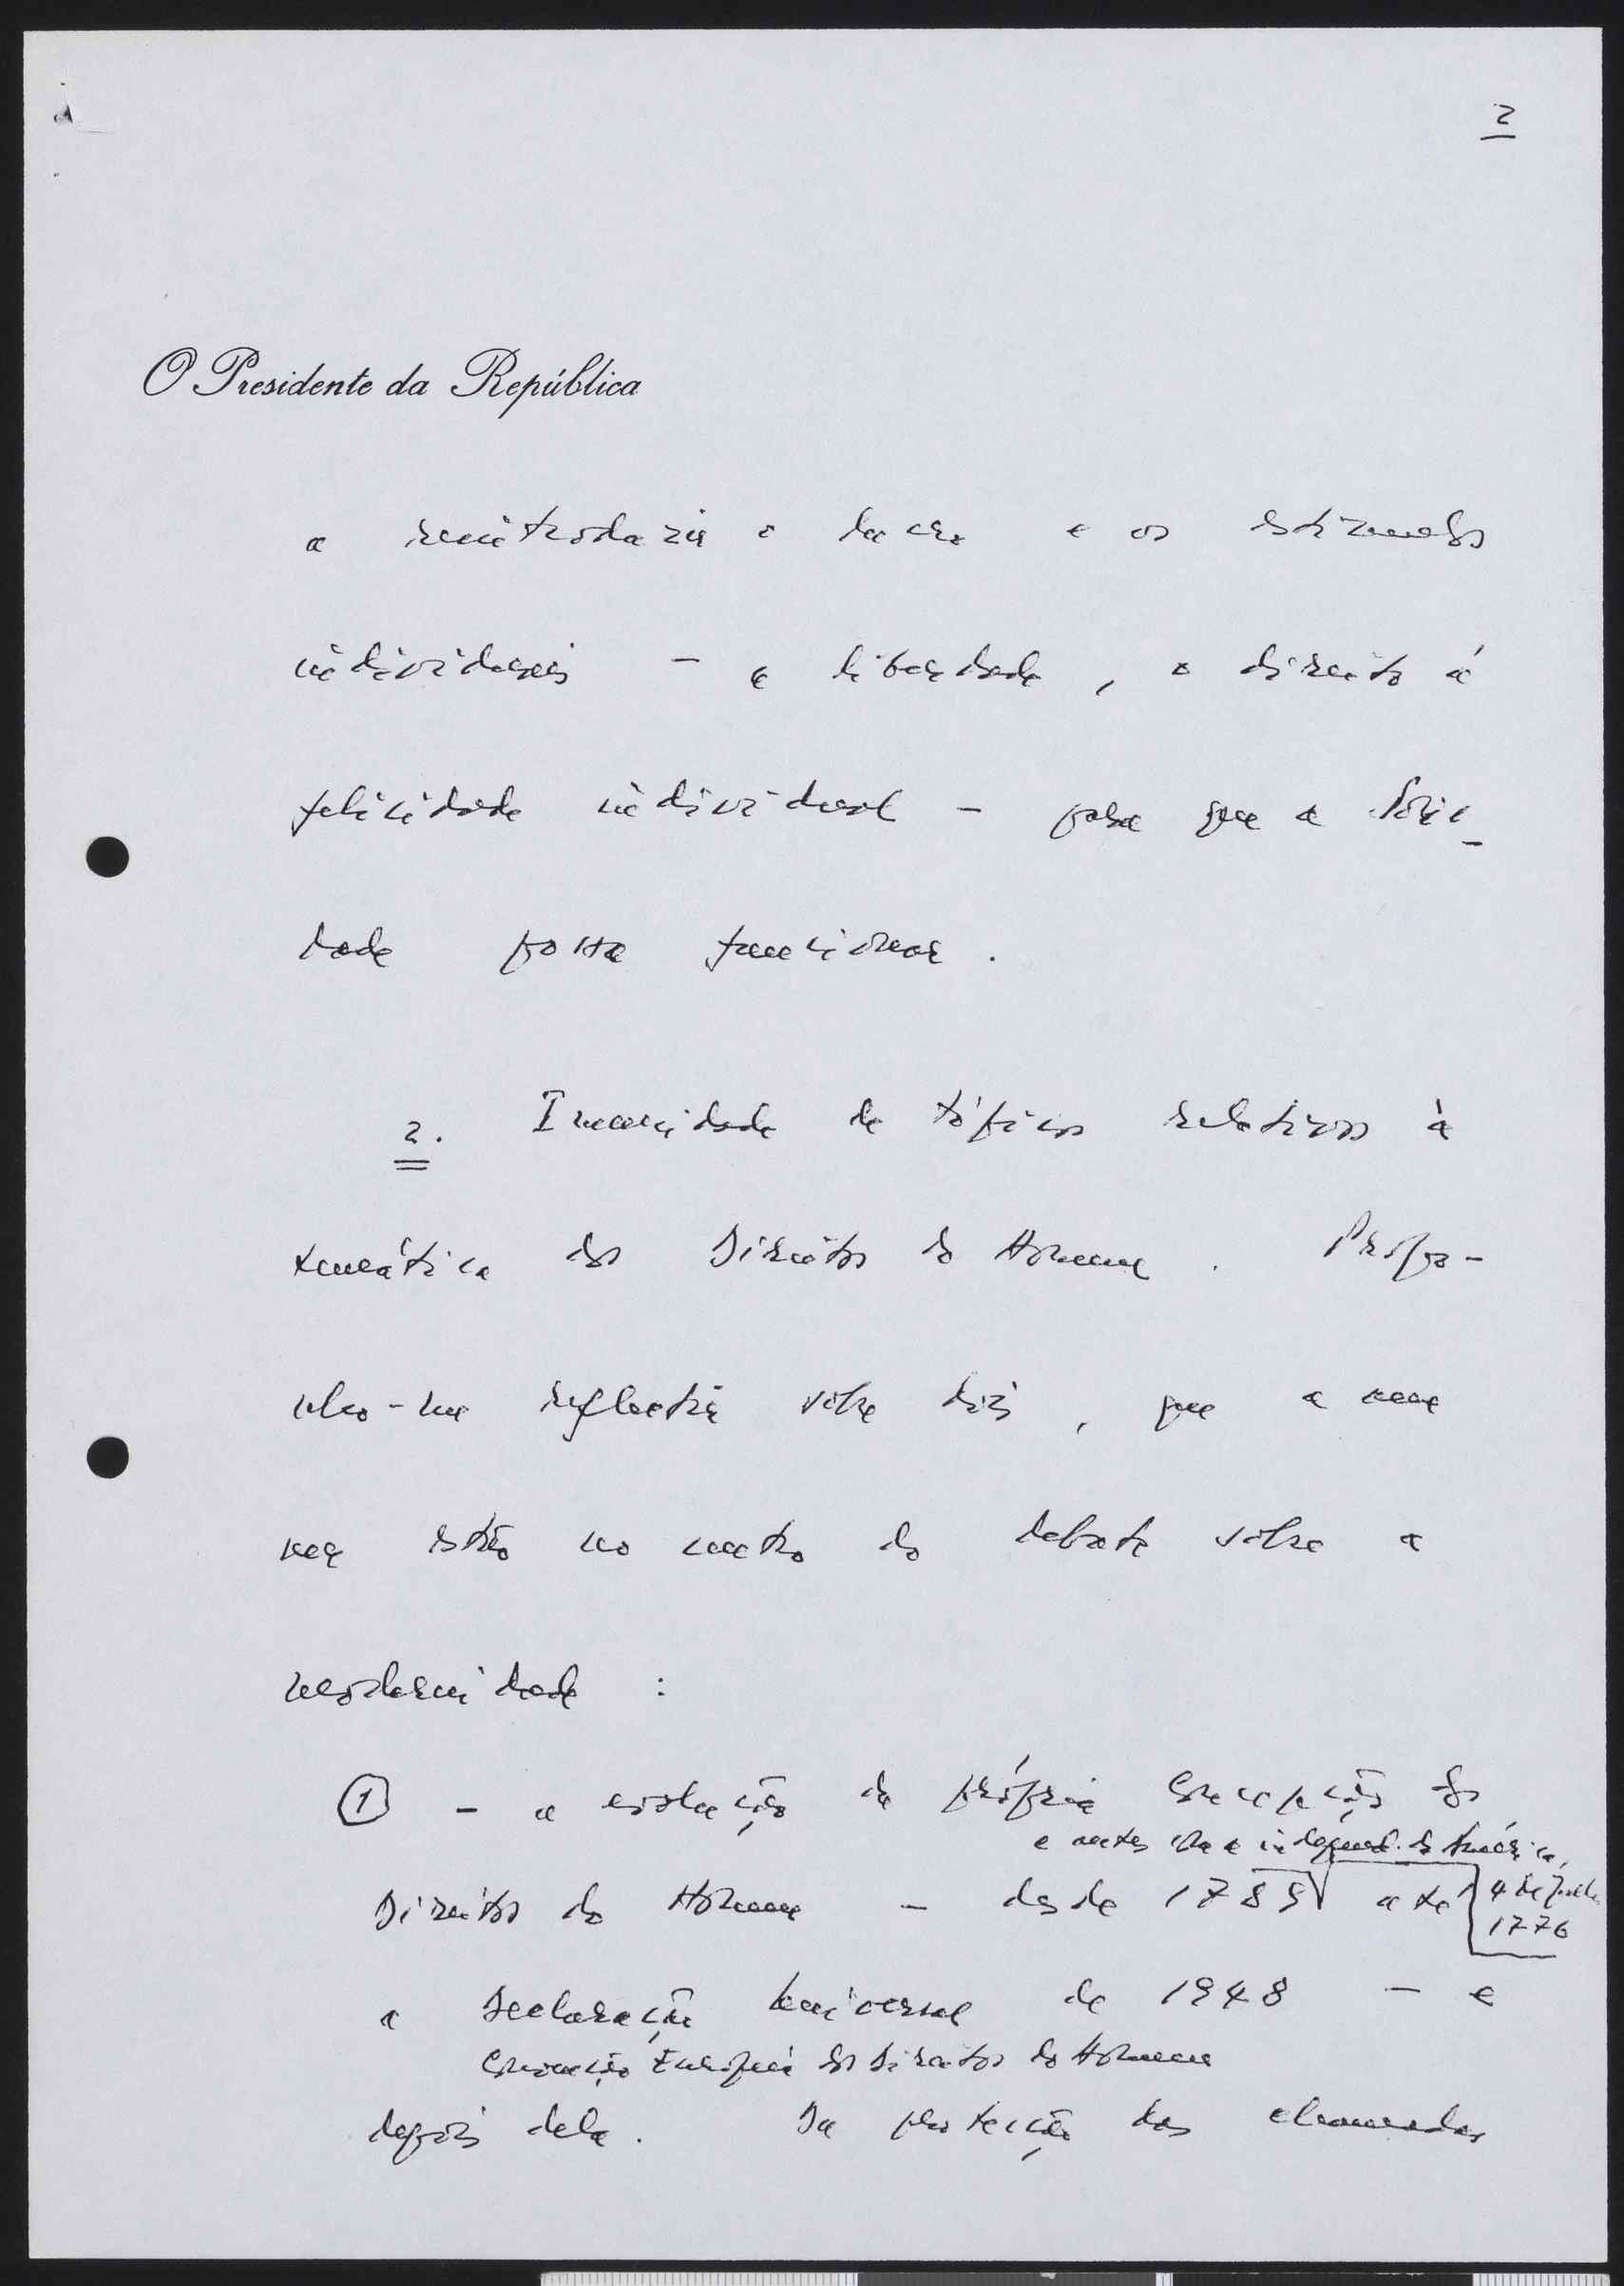 2
O Presidente da República
a reintroduzir o lucro e os estímulos
individuais - a liberdade, o direito à
felicidade individual - para que a Socie-
dade possa funcionar.
2. Imensidade de tópicos relativos à
temática dos Direitos do Homem. Propo-
nho-me reflectir sobre dois, que a meu
ver estão no centro do debate sobre a
modernidade :
1 - a evolução da própria concepção dos
e antes com a independ. da América,
Direitos do Homem - desde 1789 até
4 de Julho
1776
a Declaração Universal de 1948 - e
Convenção Europeia dos Direitos do Homem
depois dela. Da protecção dos chamados